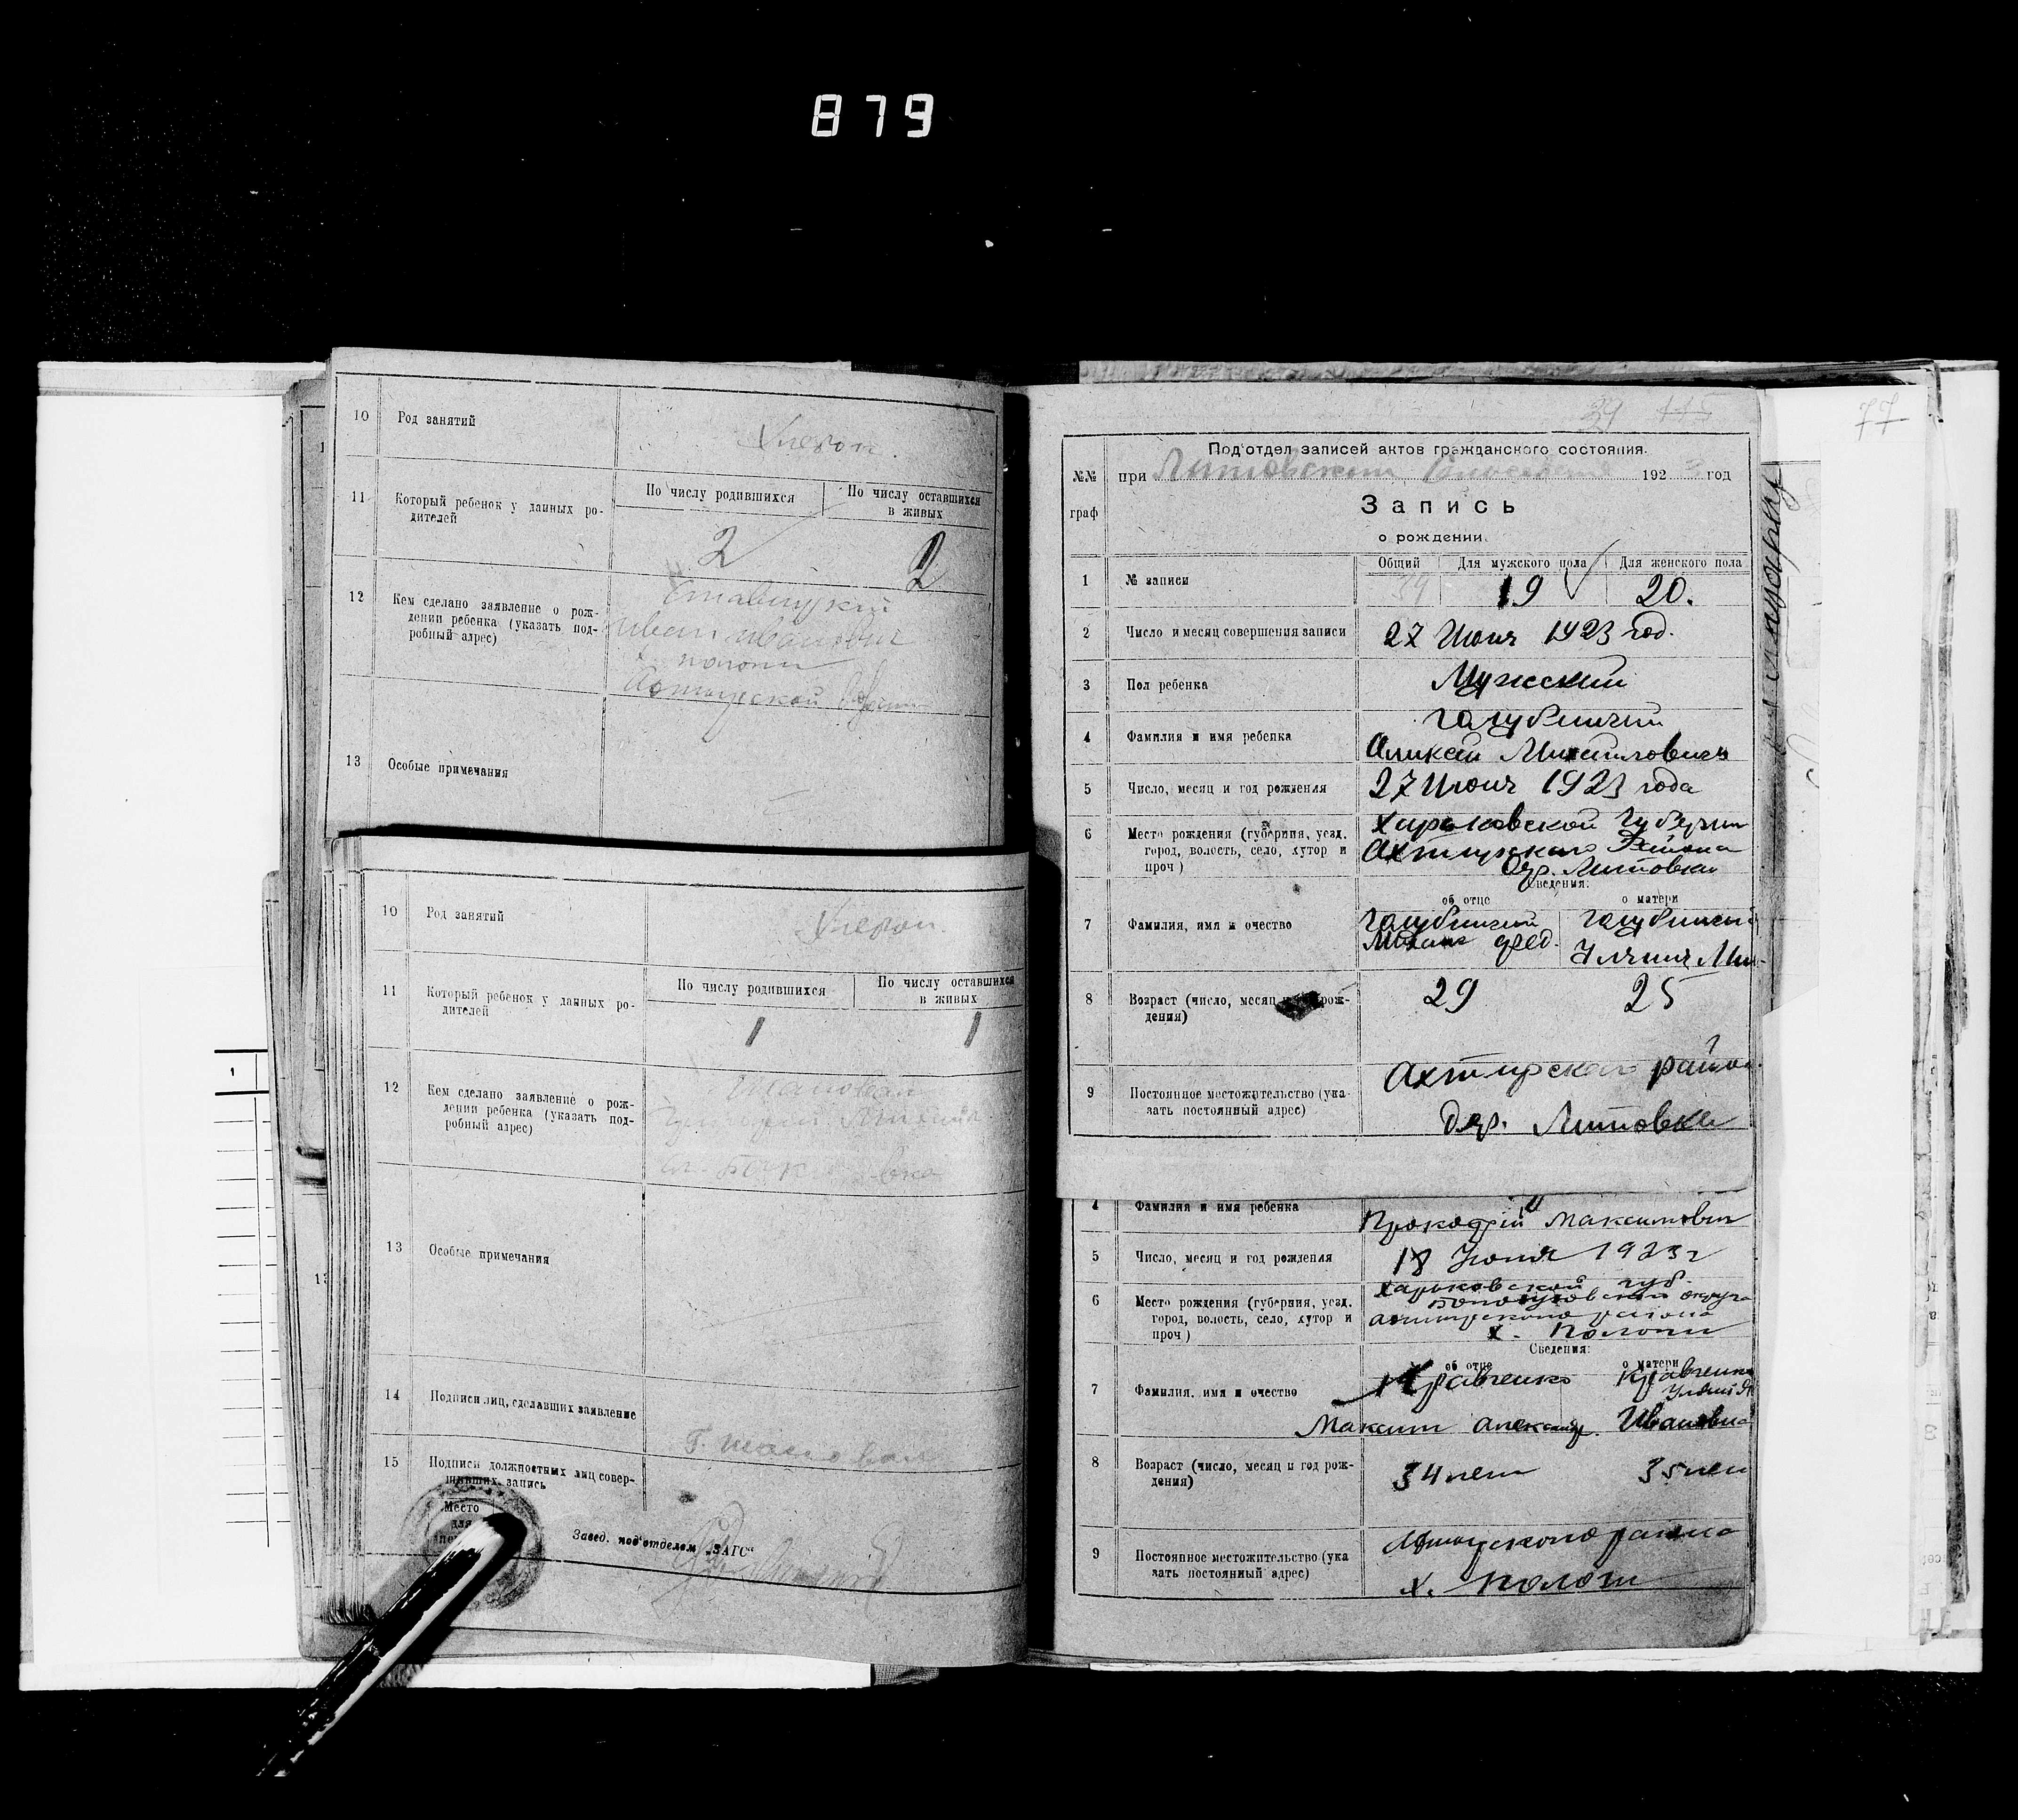 879
10 Род занятий
Хлебоп.
11 Который ребенок у данных ро-
дителей
По числу родившихся
По числу оставшихся
в живых
2
2
12 Кем сделано заявление о рож-
дении ребенка (указать под-
робный адрес)
Ставицкий
Иван Иванович
13 Особые примечания
10 Род занятий
Хлебоп.
11 Который ребенок у данных ро-
дителей
По числу родившихся
По числу оставшихся
в живых
1
1
12 Кем сделано заявление о рож-
дении ребенка (указать под-
робный адрес)
Шаповал
13 Особые примечания
14 Подписи лиц, сделавших заявление
Г. Шаповал
15 Подписи должностных лиц совер-
шивших запись
Место
для
Завед. под'отделом „ЗАГС“
1
39 115
77
Под'отдел записей актов гражданского состояния.
№№
граф
при Литовском 192 3 год
Запись
о рождении.
Общий
Для мужского пола
Для женского пола
1 № записи
39
19
20.
2 Число и месяц совершения записи
27 Июня 1923 год.
3 Пол ребенка
Мужский
4 Фамилия и имя ребенка
Галубничий
Аликсей Михайлович
5 Число, месяц и год рождения
27 Июня 1923 года
6 Место рождения (губерния, уезд,
город, волость, село, хутор и
проч)
Харьковской Губернии
Ахтирскаго Района
Дер. Литовки
Сведения:
об отце
о матери
7 Фамилия, имя и очество
Галубничий
Галубничий
8 Возраст (число, месяц и год рож-
дения)
29
25
9 Постоянное местожительство (ука-
зать постоянный адрес)
Ахтирскаго район
Дер. Литовки
4 Фамилия и имя ребенка
Прокофий Максимович
5 Число, месяц и год рождения
18 Июня 1923 г
6 Место рождения (губерния, уезд,
город, волость, село, хутор и
проч)
Харьковской губ.
Богодуховской округа
ахтирскаго района
х. Пологи
Сведения:
об отце
о матери
7 Фамилия, имя и очество
Кравченко
Кравченко
Максим Александр.
Ивановна
8 Возраст (число, месяц и год рож-
дения)
34 лет
35 лет
9 Постоянное местожительство (ука
зать постоянный адрес)
Ахтирскаго района
х. Пологи